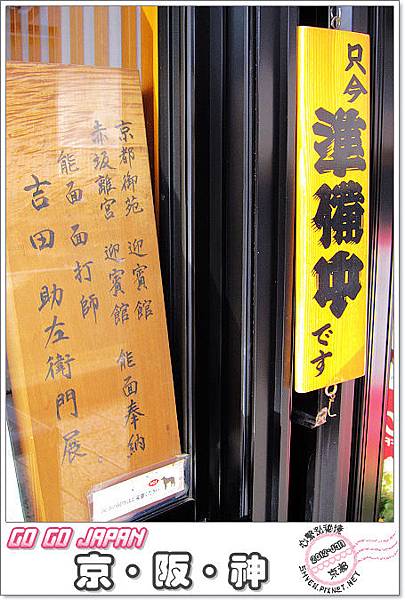 只今
準備中
です
京都御苑 迎賓館
赤坂離宮 迎賓館 能面奉納
能面面打師
吉田助左衛門展
GO GO JAPAN
京・阪・神
SHYEN.PIXNET.NET